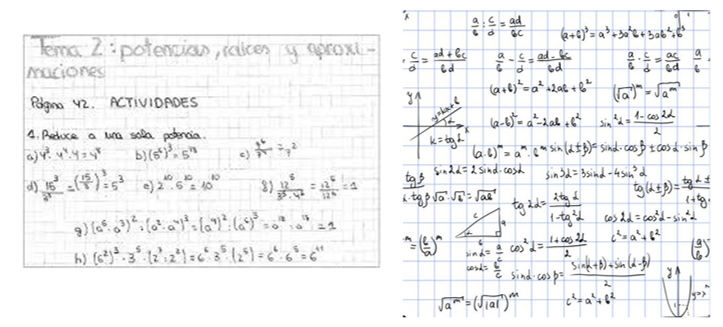 Tema 2: potencias, raíces y aproxi-
maciones
Página 42. ACTIVIDADES
1. Reduce a una sola potencia.
a) 4³·4⁴·4 = 4⁸ b) (5⁶)³ = 5¹⁸ c) 7⁶/7⁴ = 7²
d) 15³/3³ = (15/3)³ = 5³ e) 2¹⁰·5¹⁰ = 10¹⁰ f) 12⁵/(3⁵·4⁵) = 12⁵/12⁵ = 1
g) (a⁶·a³)²:(a²·a⁴)³ = (a⁹)²:(a⁶)³ = a¹⁸:a¹⁸ = 1
h) (6²)³·3⁵·(2⁷:2²) = 6⁶·3⁵·(2⁵) = 6⁶·6⁵ = 6¹¹
a/b : c/d = ad/bc
(a+b)³ = a³+3a²b+3ab²+b³
c/d = ad+bc/bd a/b - c/d = ad-bc/bd a/b · c/d = ac/bd a/b
(a+b)² = a²+2ab+b² (√a)ᵐ = √aᵐ
y y=kx+b
(a-b)² = a²-2ab+b² sin²α = 1-cos2α/2
k = tgα x
(a·b)ᵐ = aᵐ·bᵐ sin(α±β) = sinα·cosβ ± cosα·sinβ
tgβ sin2α = 2sinα·cosα sin3α = 3sinα-4sin³α
α·tgβ √a·√b = √ab tg2α = 2tgα/1-tg²α tg(α±β) = tgα±t/1+tg
c a α b cos2α = cos²α-sin²α
ᵐ = (b/a)ᵐ sinα = a/c cos²α = 1+cos2α/2 c² = a²+b² (a/b)
cosα = b/c sinα·cosβ = sin(α+β)+sin(α-β)/2 y
√aᵐ = (√|a|)ᵐ c² = a²+b² y=x²